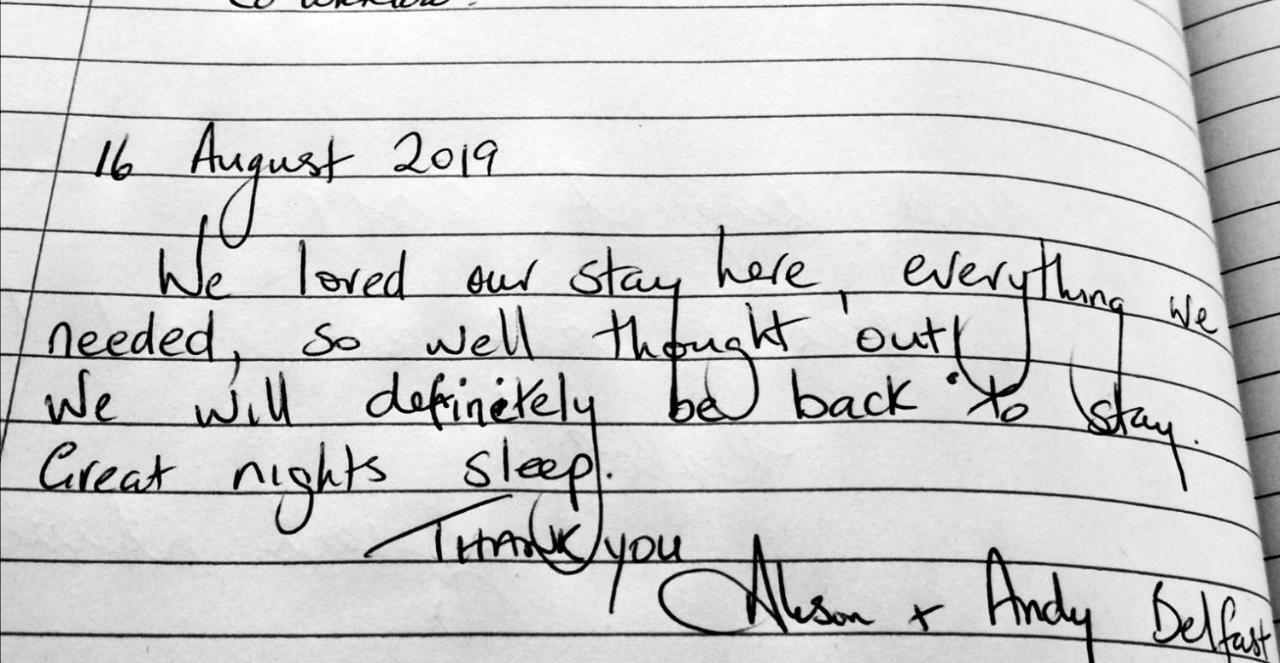 16 August 2019
We loved our stay here, everything we
needed, so well thought out!
We will definitely be back to stay.
Great nights sleep.
THANK YOU
Alison + Andy Belfast